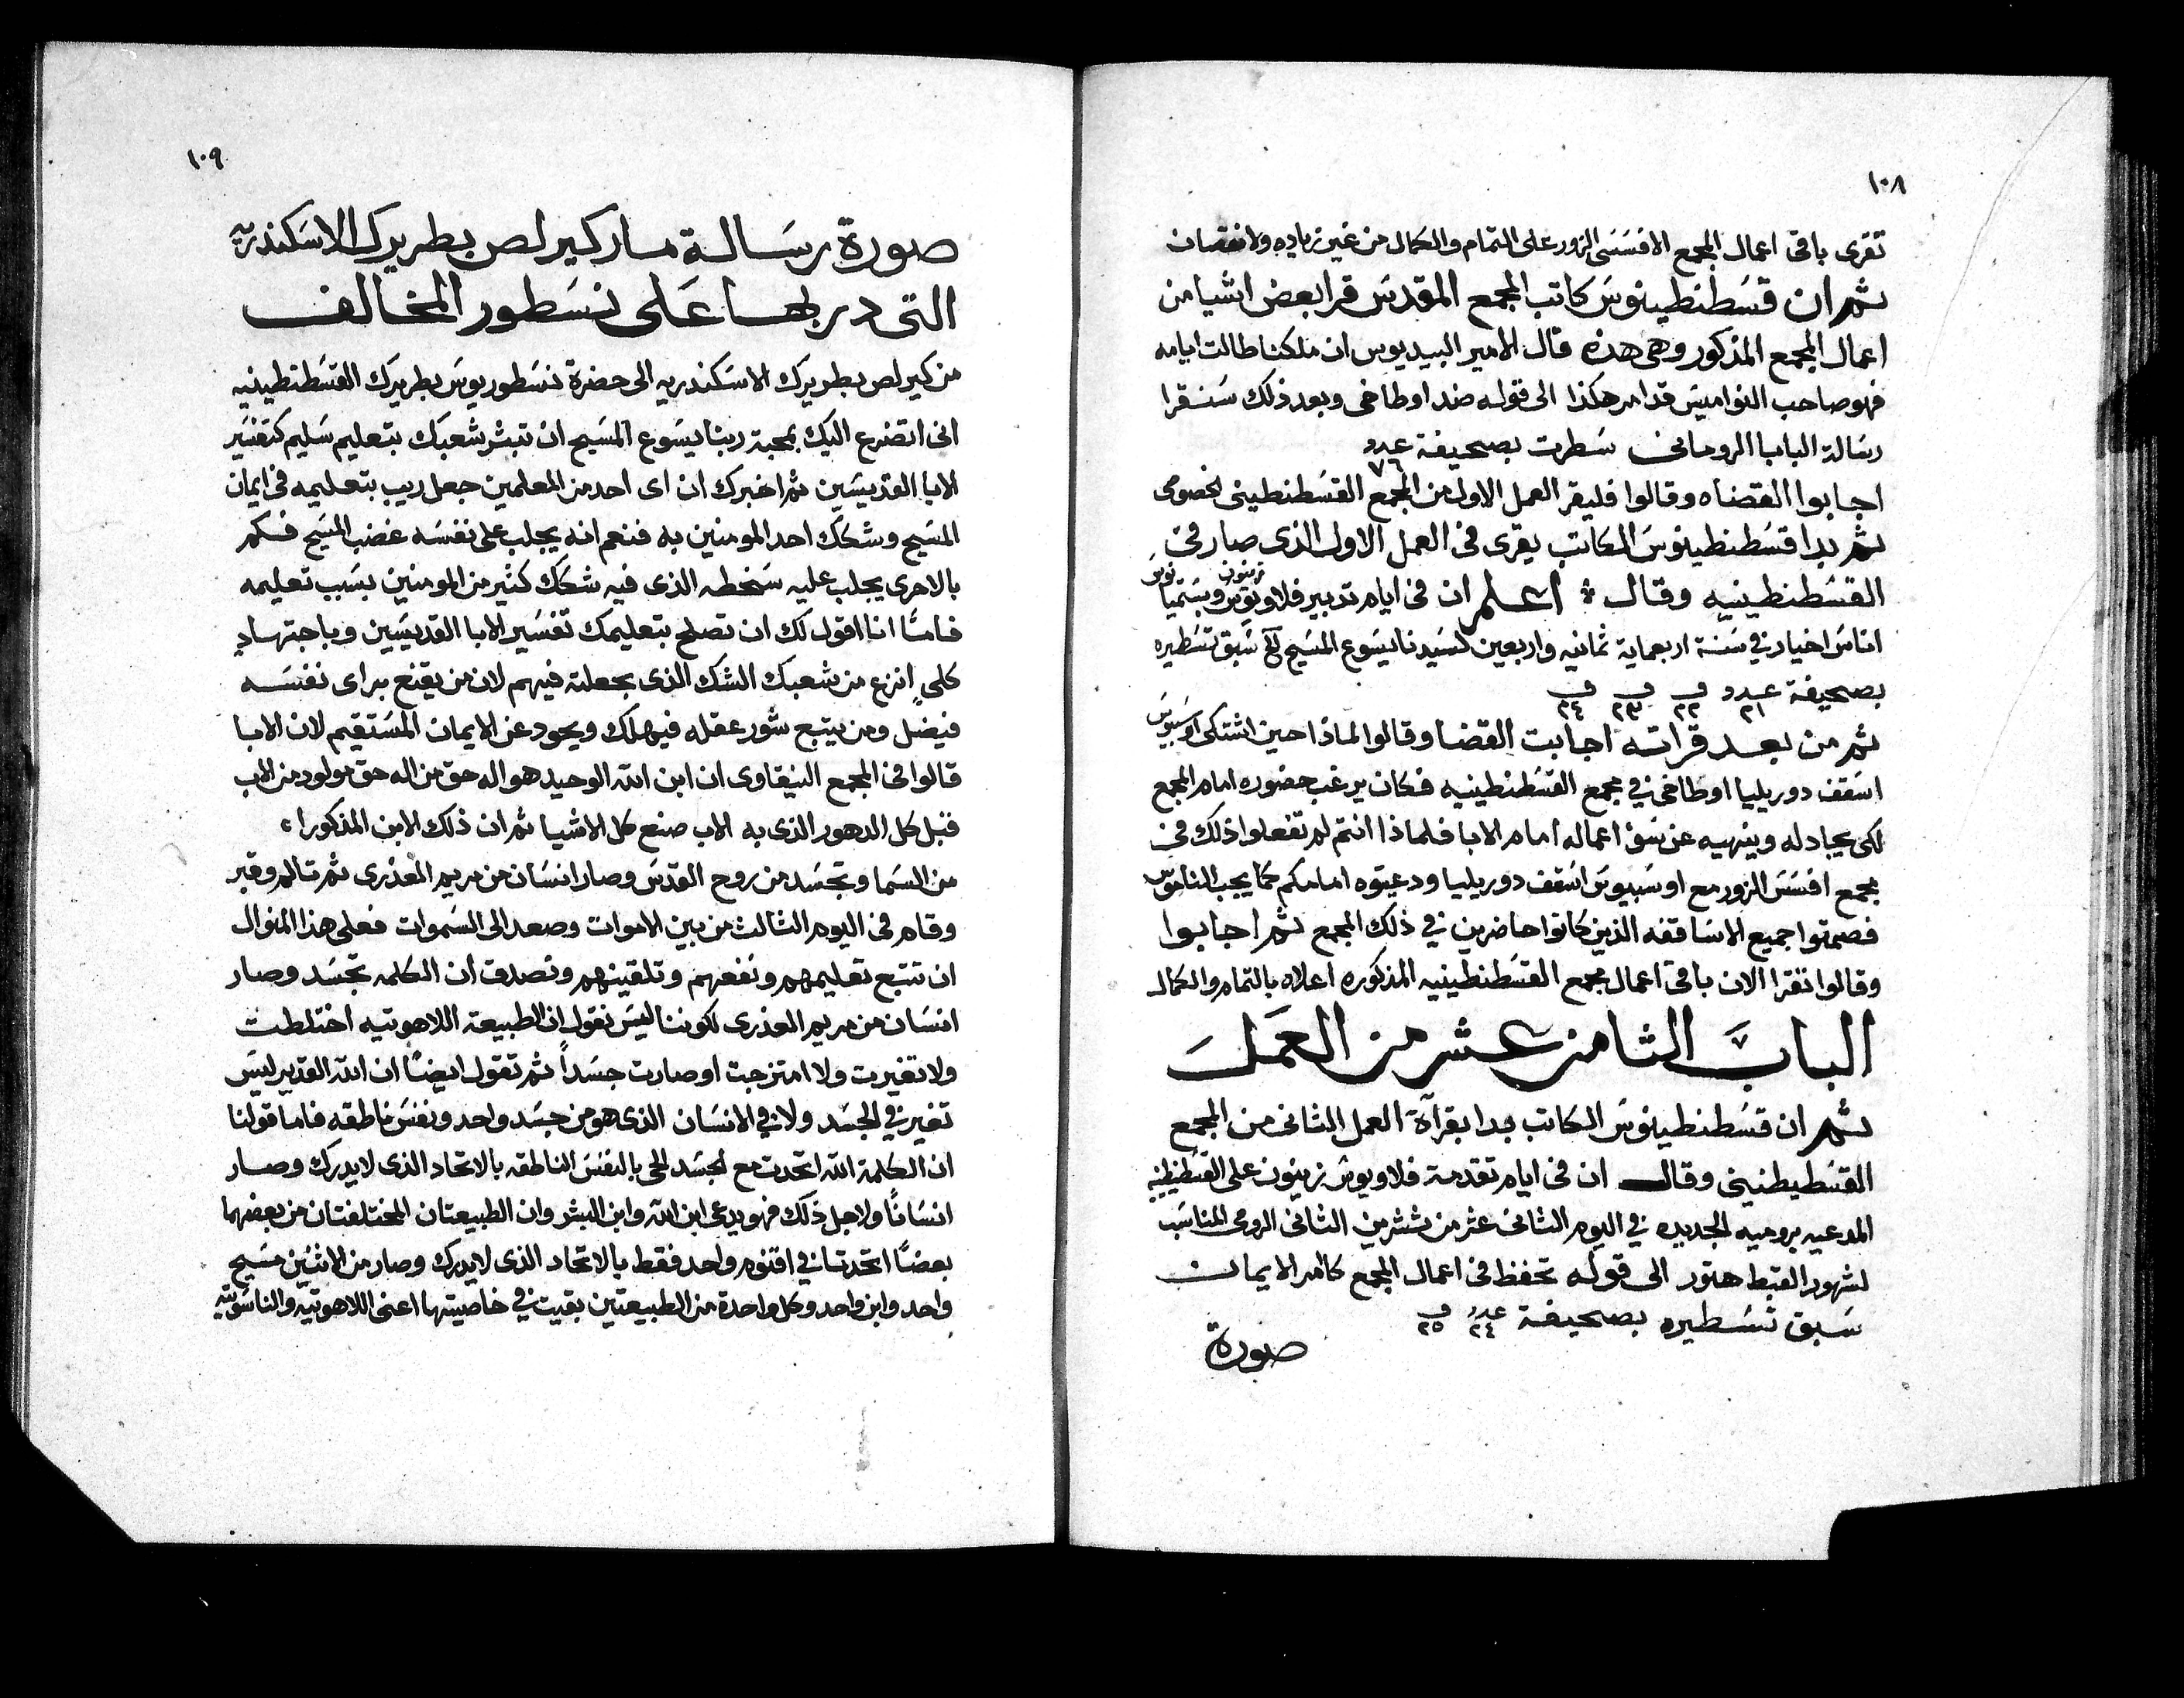 ١٠٨
تقرى باقى اعمال المجمع الافسسى الزور على التمام والكمال من غير زياده ولا نقصان
ثم ان قسطنطينوس كاتب المجمع المقدس قرا بعض اشيا من
اعمال المجمع المذكور وهى هذه قال الامير البيديوس ان ملكنا طالت ايامه
فهو صاحب النواميس قد امر هكذا الى قوله ضد اوطاخى وبعد ذلك سنقرا
رسالة البابا الرومانى سطرت بصحيفة عدد ٧٦
اجابوا القضاه وقالوا فليقر العمل الاول من المجمع القسطنطينى لخصومى
ثم بدا قسطنطينوس الكاتب يقرى فى العمل الاول الذى صار فى
القسطنطينيه وقال اعلم ان فى ايام تدبير فلاويوس زينون وبستميانوس
اناس اخيار فى سنة اربعماية ثمانيه واربعين لسيدنا يسوع المسيح سبق تسطيره
بصحيفة عدد ٢١ و ٢٢ و ٢٣ و ٢٤
ثم من بعد قراته اجابت القضا وقالوا لماذا حين اشتكى اوسبيوس
اسقف دوريليا اوطاخى فى مجمع القسطنطينيه فكان يرغب حضوره امام المجمع
لكى يجادله وينهيه عن سؤ اعماله امام الابا فلماذا انتم لم تفعلوا ذلك فى
مجمع افسس الزور مع اوسبيوس اسقف دوريليا ودعيتوه امامكم كما يجب الناموس
فصمتوا جميع الاساقفه الذين كانوا حاضرين فى ذلك المجمع ثم اجابوا
وقالوا نقرا الان باقى اعمال مجمع القسطنطينيه المذكوره اعلاه بالتمام والكمال
الباب الثامن عشر من العمل
ثم ان قسطنطينوس الكاتب بدا بقرآة العمل الثانى من المجمع
القسطيطنينى وقال ان فى ايام تقدمة فلاويوس زينون على القسطنطينيه
المدعيه بروميه الجديده فى اليوم الثانى عشر من تشرين الثانى الرومى المناسب
لشهور القبط هتور الى قوله تحفظ فى اعمال المجمع كامر الايمان
سبق تسطيره بصحيفة عدد ٢٤ و ٢٥
صورة
١٠٩
صورة رسالة مار كيرلص بطريرك الاسكندريه
التى دربها على نسطور المخالف
من كيرلص بطريرك الاسكندريه الى حضرة نسطوريوس بطريرك القسطنطينيه
انى اتضرع اليك بمحبة ربنا يسوع المسيح ان تبشر شعبك بتعليم سليم كتفسير
الابا القديسين ثم اخبرك ان اى احد من المعلمين جعل ريب بتعليمه فى ايمان
المسيح وشكك احد المومنين به فنعم انه يجلب على نفسه غضب المسيح فكم
بالاحرى يجلب عليه سخطه الذى فيه شكك كثير من المومنين بسبب تعليمه
فامّا انا اقول لك ان تصلح بتعليمك تفسير الابا القديسين وباجتهادٍ
كلىٍ انزع من شعبك الشك الذى جعلته فيهم لان من يقنع براى نفسه
فيضل ومن يتبع شور عقله فيهلك ويحود عن الايمان المستقيم لان الابا
قالوا فى المجمع النيقاوى ان ابن الله الوحيد هو اله حق من اله حق مولود من الاب
قبل كل الدهور الذى به الاب صنع كل الاشيا ثم ان ذلك الابن المذكورا
من السما وتجسد من روح القدس وصار انسان من مريم العذرى ثم تالم وقبر
وقام فى اليوم الثالث من بين الاموات وصعد الى السموات فعلى هذا المنوال
ان تتبع تعليمهم ونفعهم وتلقينهم وتصدق ان الكلمه تجسد وصار
انسان من مريم العذرى لكوننا ليس نقول ان الطبيعة اللاهوتيه اختلطت
ولا تغيرت ولا امتزجت او صارت جسداً ثم تقول ايضًا ان الله القدير ليس
تغير فى الجسد ولا فى الانسان الذى هو من جسد واحد ونفس ناطقه فاما قولنا
ان الكلمة الله اتحدت مع الجسد الحى بالنفس الناطقه بالاتحاد الذى لا يدرك وصار
انسانًا ولاجل ذلك فهو يدعى ابن الله وابن البشر وان الطبيعتان المختلفتان من بعضهما
بعضًا اتحدتا فى اقنوم واحد فقط بالاتحاد الذى لا يدرك وصار من الاثنين مسيح
واحد وابن واحد وكل واحدة من الطبيعتين بقيت فى خاصيتها اعنى اللاهوتيه والناسوتيه